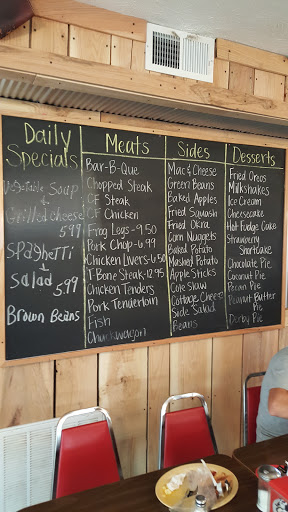 Daily
Specials
Vegetable Soup
&
Grilled Cheese
5.99
Spaghetti
&
Salad
5.99
Brown Beans
Meats
Bar-B-Que
Chopped Steak
CF Steak
CF Chicken
Frog Legs - 9.50
Pork Chop - 6.99
Chicken Livers - 6.50
T Bone Steak - 12.95
Chicken Tenders
Pork Tenderloin
Fish
Chuckwagon
Sides
Mac & Cheese
Green Beans
Baked Apples
Fried Squash
Fried Okra
Corn Nuggets
Baked Potato
Mashed Potato
Apple Sticks
Cole Slaw
Cottage Cheese
Side Salad
Beans
Desserts
Fried Oreos
Milkshakes
Ice Cream
Cheesecake
Hot Fudge Cake
Strawberry
Shortcake
Chocolate Pie
Coconut Pie
Pecan Pie
Peanut Butter
Pie
Derby Pie